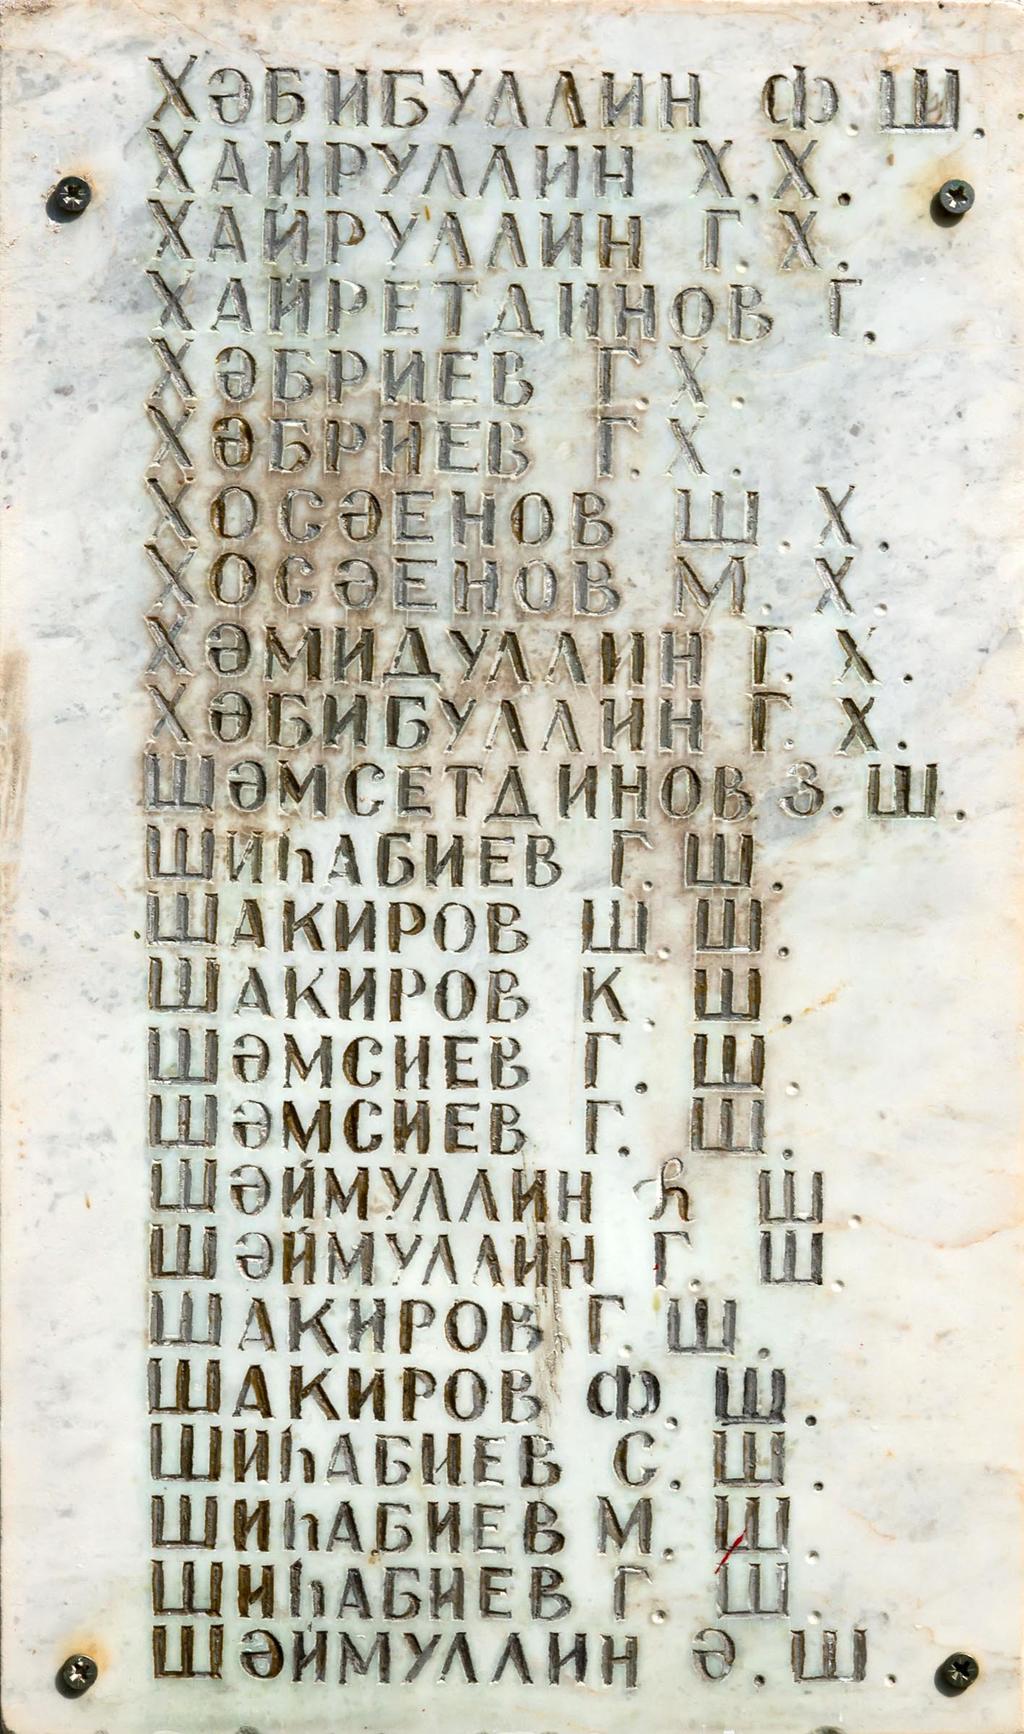 ХӘБИБУЛЛИН Ф.Ш.
ХАЙРУЛЛИН Х.Х.
ХАЙРУЛЛИН Г.Х.
ХАЙРЕТДИНОВ Г.
ХӘБРИЕВ Г.Х.
ХӘБРИЕВ Г.Х.
ХОСӘЕНОВ Ш.Х.
ХОСӘЕНОВ М.Х.
ХӘМИДУЛЛИН Г.Х.
ХӘБИБУЛЛИН Г.Х.
ШӘМСЕТДИНОВ З.Ш.
ШИҺАБИЕВ Г.Ш.
ШАКИРОВ Ш.Ш.
ШАКИРОВ К.Ш.
ШӘМСИЕВ Г.Ш.
ШӘМСИЕВ Г.Ш.
ШӘЙМУЛЛИН Һ Ш.
ШӘЙМУЛЛИН Г.Ш.
ШАКИРОВ Г.Ш.
ШАКИРОВ Ф.Ш.
ШИҺАБИЕВ С.Ш.
ШИҺАБИЕВ М.Ш.
ШИҺАБИЕВ Г.Ш.
ШӘЙМУЛЛИН Ә.Ш.